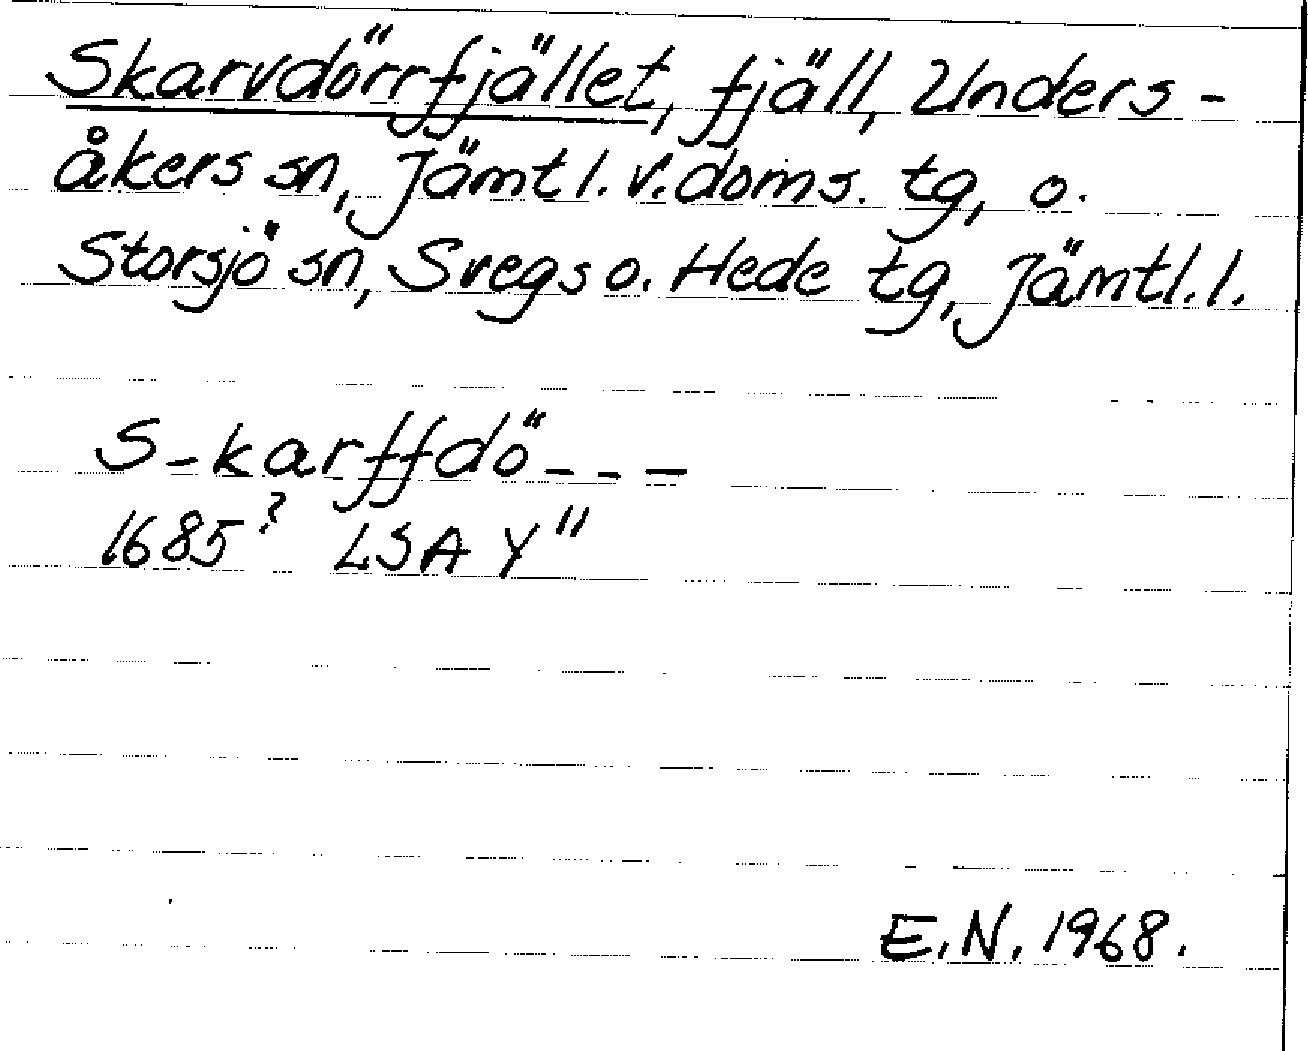 Skarvdörrfjället, fjäll, Unders-
åkers sn, Jämtl. v. doms. tg, o.
Storsjö sn, Svegs o. Hede tg, Jämtl. l.
S-karffdö---
1685? LSA Y"
E.N. 1968.